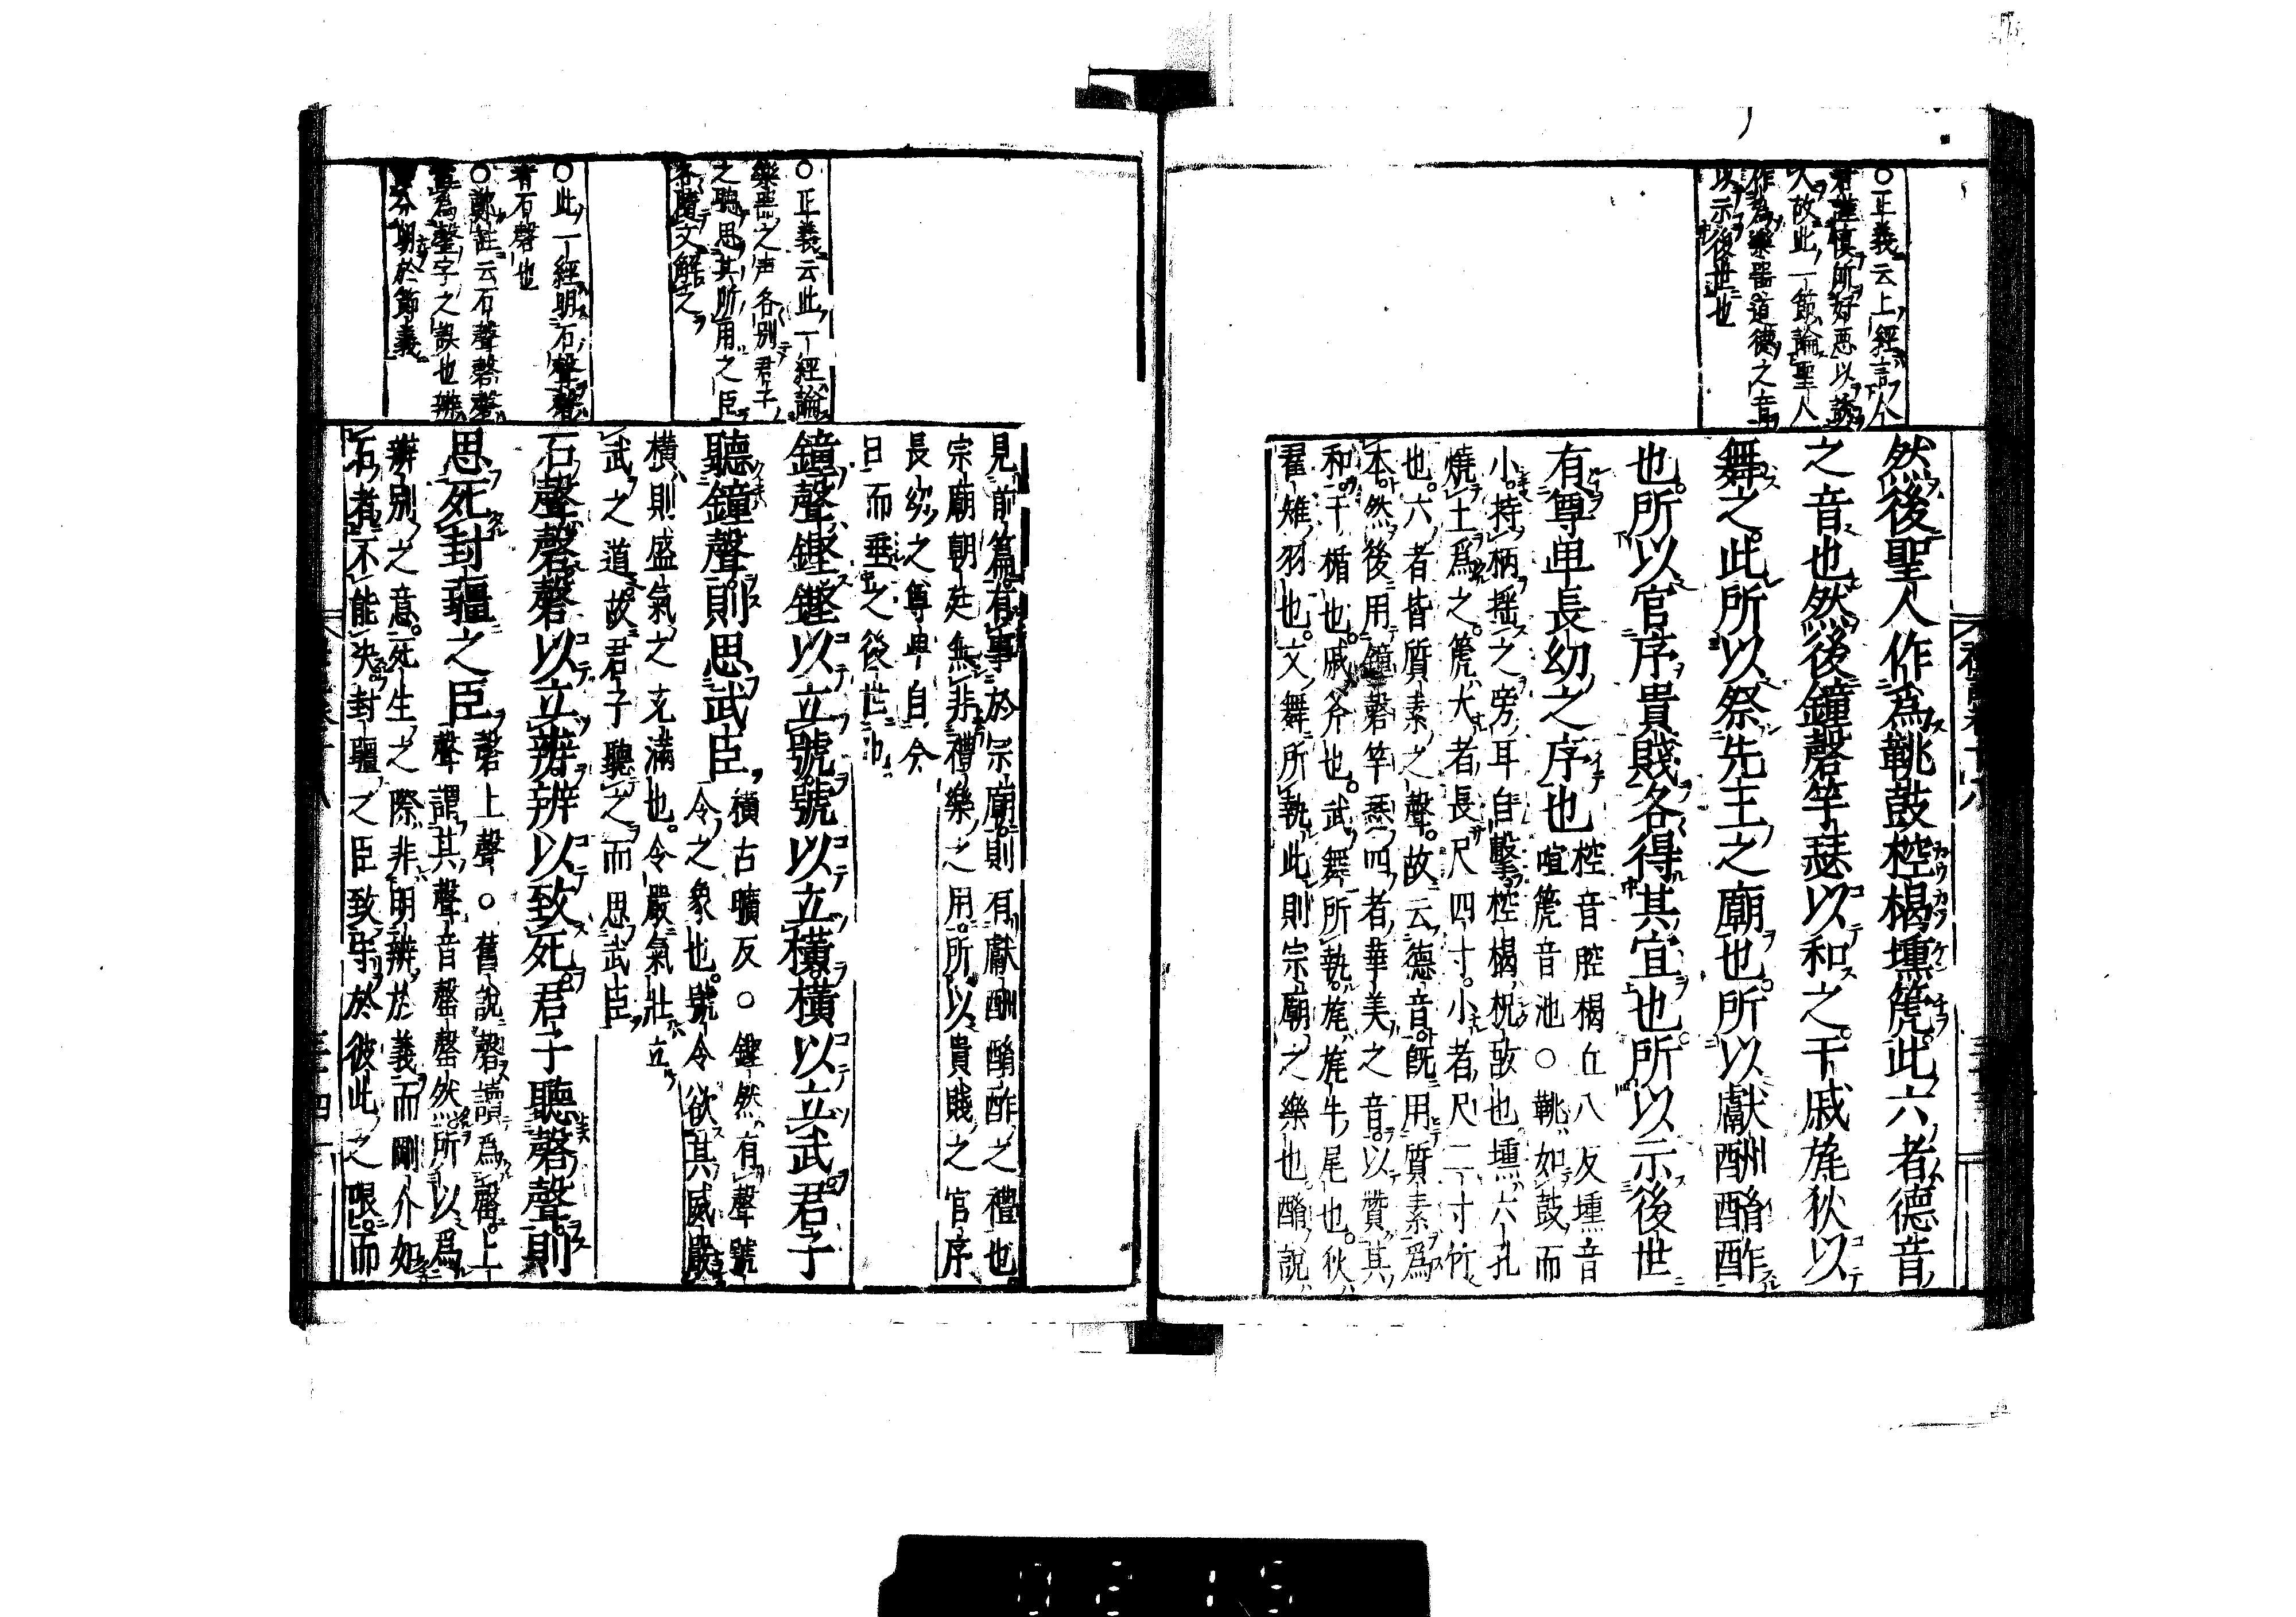 ○正義云上經言人
君謹愼所好悪以誘
人故此一節論聖人
作為樂器道德之音
以示後世也
然後聖人作爲鞉鼓椌楬壎篪此六者德音
之音也然後鐘磬竽瑟以和之干戚旄狄以
舞之此所以祭先王之廟也所以獻酬酳酢
也所以官序貴賤各得其宜也所以示後世
有尊卑長幼之序也
椌音腔楬丘八反壎音
喧篪音池○鞉如鼓而
小持柄揺之旁耳自擊椌楬柷敔也壎六孔
燒土爲之篪大者長尺四寸小者尺二寸竹
也六者皆質素之聲故云德音既用質素爲
本然後用鐘磬竽瑟四者華美之音以贊其
和干楯也戚斧也武舞所執旄旄牛尾也狄
翟雉羽也文舞所執此則宗廟之樂也酳說
○正義云此一經論
樂噐之声各别君子
之聽思其所用之臣
各隨文解之
○此一經明石聲磬
者石磬也
○鄭註云石聲磬磬
當為罄字之誤也辨
謂分明於節義
見前篇有事於宗廟則有獻酬酳酢之禮也
宗廟朝廷無非禮樂之用所以貴賤之官序
長幼之尊卑自今
日而垂之後世也
鐘聲鏗鏗以立號號以立橫橫以立武君子
聽鐘聲則思武臣
橫古曠反○鏗然有聲號
令之象也號令欲其威嚴
橫則盛氣之充滿也令嚴氣壯立
武之道故君子聽之而思武臣
石聲磬磬以立辨辨以致死君子聽磬聲則
思死封疆之臣
磬上聲○舊說磬讀爲罄上
聲謂其聲音罄罄然所以爲
辨别之意死生之際非明辨於義而剛介如
石者不能決封疆之臣致守於彼此之限而